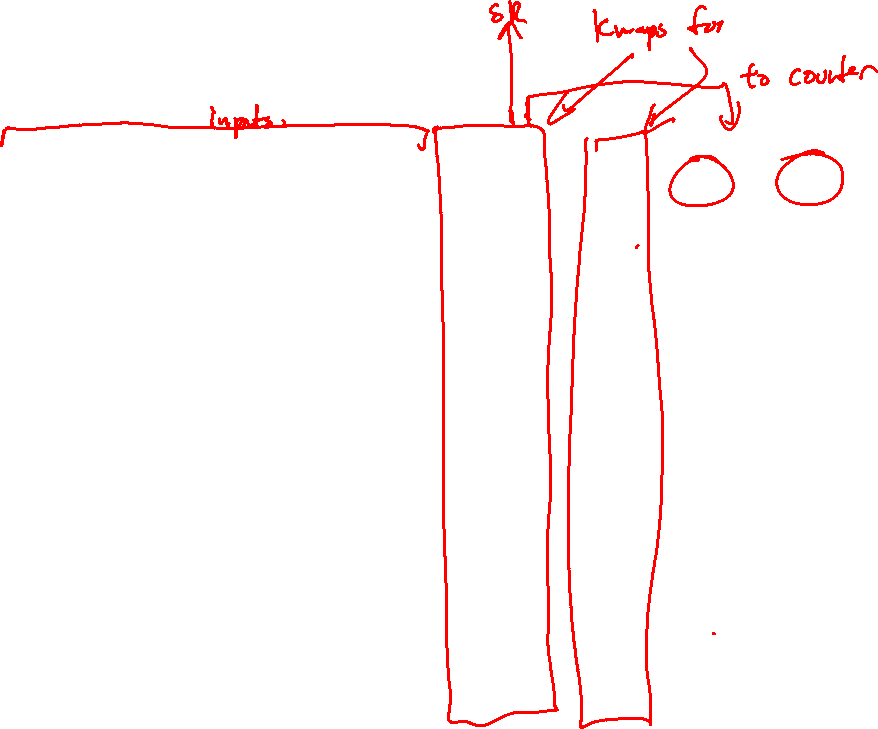 SR
Kmaps for
to counter
inputs.